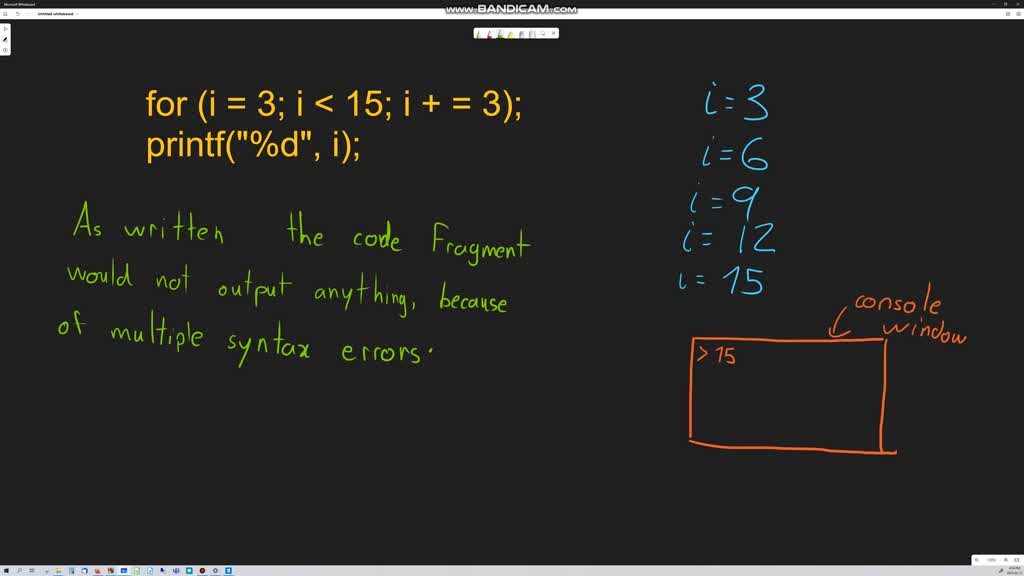 Microsoft Whiteboard
www.BANDICAM.com
Untitled whiteboard
for (i = 3; i < 15; i + = 3);
printf("%d", i);
As written the code Fragment
would not output anything, because
of multiple syntax errors.
i = 3
i = 6
i = 9
i = 12
i = 15
console
window
> 15